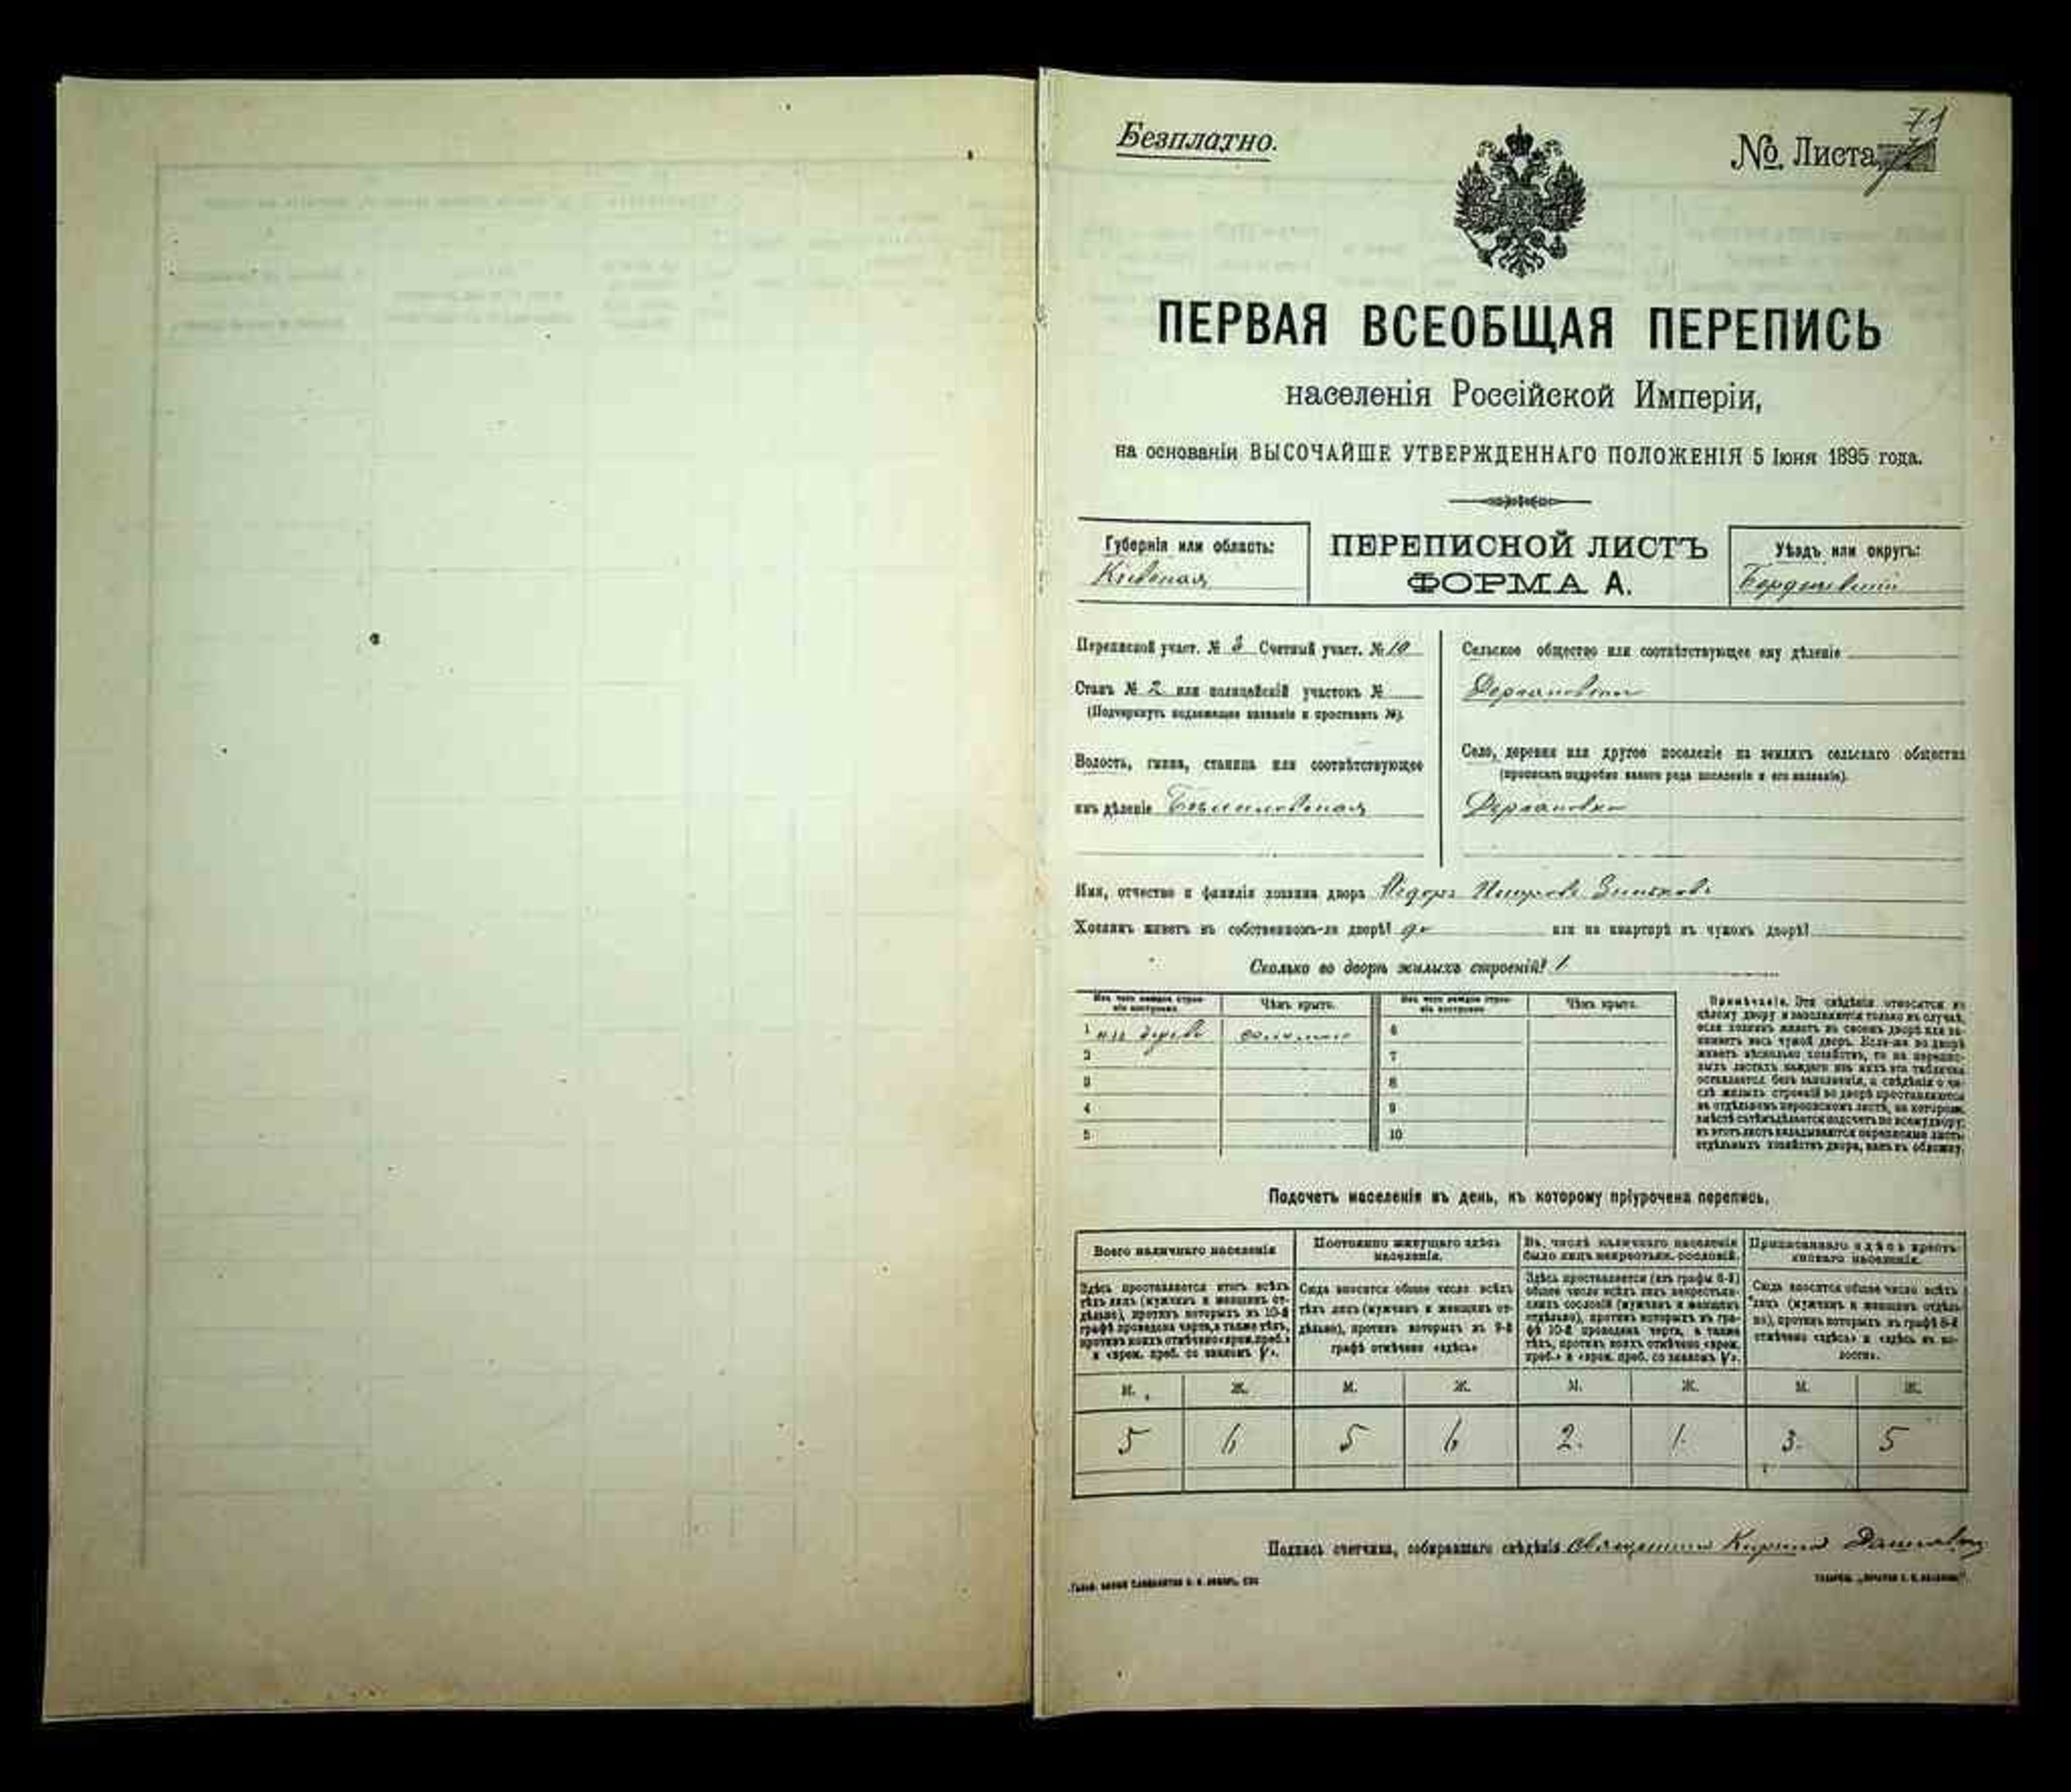 Безплатно.
№ Листа 71
ПЕРВАЯ ВСЕОБЩАЯ ПЕРЕПИСЬ
населенія Россійской Имперіи,
на основаніи ВЫСОЧАЙШЕ УТВЕРЖДЕННАГО ПОЛОЖЕНІЯ 5 Іюня 1895 года.
Губернія или область:
Кіевская
ПЕРЕПИСНОЙ ЛИСТЪ
ФОРМА А.
Уѣздъ или округъ:
Бердичевскій
Переписной участ. № 3 Счетный участ. № 10
Станъ № 2 или полицейскій участокъ №
(Подчеркнуть подлежащее названіе и проставить №).
Волость, гмина, станица или соотвѣтствующее
имъ дѣленіе
Сельское общество или соотвѣтствующее ему дѣленіе
Село, деревня или другое поселеніе на земляхъ сельскаго общества
(прописать подробно какого рода поселеніе и его названіе).
Имя, отчество и фамилія хозяина двора Ѳедоръ Петровъ
Хозяинъ живетъ въ собственномъ-ли дворѣ? да или на квартирѣ въ чужомъ дворѣ?
Сколько во дворѣ жилыхъ строеній? 1
Изъ чего каждое строе-
ніе построено.
Чѣмъ крыто.
Изъ чего каждое строе-
ніе построено.
Чѣмъ крыто.
1 изъ дерева соломою 6
2 7
3 8
4 9
5 10
Примѣчаніе. Эти свѣдѣнія относятся къ
цѣлому двору и заполняются только въ случаѣ,
если хозяинъ живетъ въ своемъ дворѣ или за-
нимаетъ весь чужой дворъ. Если-же во дворѣ
живетъ нѣсколько хозяйствъ, то на перепис-
ныхъ листахъ каждаго изъ нихъ эта табличка
оставляется безъ заполненія, а свѣдѣнія о чи-
слѣ жилыхъ строеній во дворѣ проставляются
на отдѣльномъ переписномъ листѣ, на которомъ,
вмѣстѣ съ тѣмъ дѣлается подсчетъ по всему двору;
въ этотъ листъ вкладываются переписные листы
отдѣльныхъ хозяйствъ двора, какъ въ обложку.
Подсчетъ населенія въ день, къ которому пріурочена перепись.
Всего наличнаго населенія
Здѣсь проставляется итогъ всѣхъ
тѣхъ лицъ (мужчинъ и женщинъ от-
дѣльно), противъ которыхъ въ 10-й
графѣ проведена черта, а также тѣхъ,
противъ коихъ отмѣчено «врем. преб.»
и «врем. преб. со знакомъ V».
Постоянно живущаго здѣсь
населенія.
Сюда вносится общее число всѣхъ
тѣхъ лицъ (мужчинъ и женщинъ от-
дѣльно), противъ которыхъ въ 9-й
графѣ отмѣчено «здѣсь»
Въ числѣ наличнаго населенія
было лицъ некрестьян. сословій.
Здѣсь проставляется (изъ графы 6-й)
общее число всѣхъ лицъ некрестьян-
скихъ сословій (мужчинъ и женщинъ
отдѣльно), противъ которыхъ въ гра-
фѣ 10-й проведена черта, а также
тѣхъ, противъ коихъ отмѣчено «врем.
преб.» и «врем. преб. со знакомъ V».
Приписаннаго здѣсь кресть-
янскаго населенія.
Сюда вносится общее число всѣхъ
лицъ (мужчинъ и женщинъ отдѣль-
но), противъ которыхъ въ графѣ 8-й
отмѣчено «здѣсь» и «здѣсь въ во-
лости».
М. Ж. М. Ж. М. Ж. М. Ж.
5 6 5 6 2. 1. 3. 5
Подпись счетчика, собиравшаго свѣдѣнія Священникъ